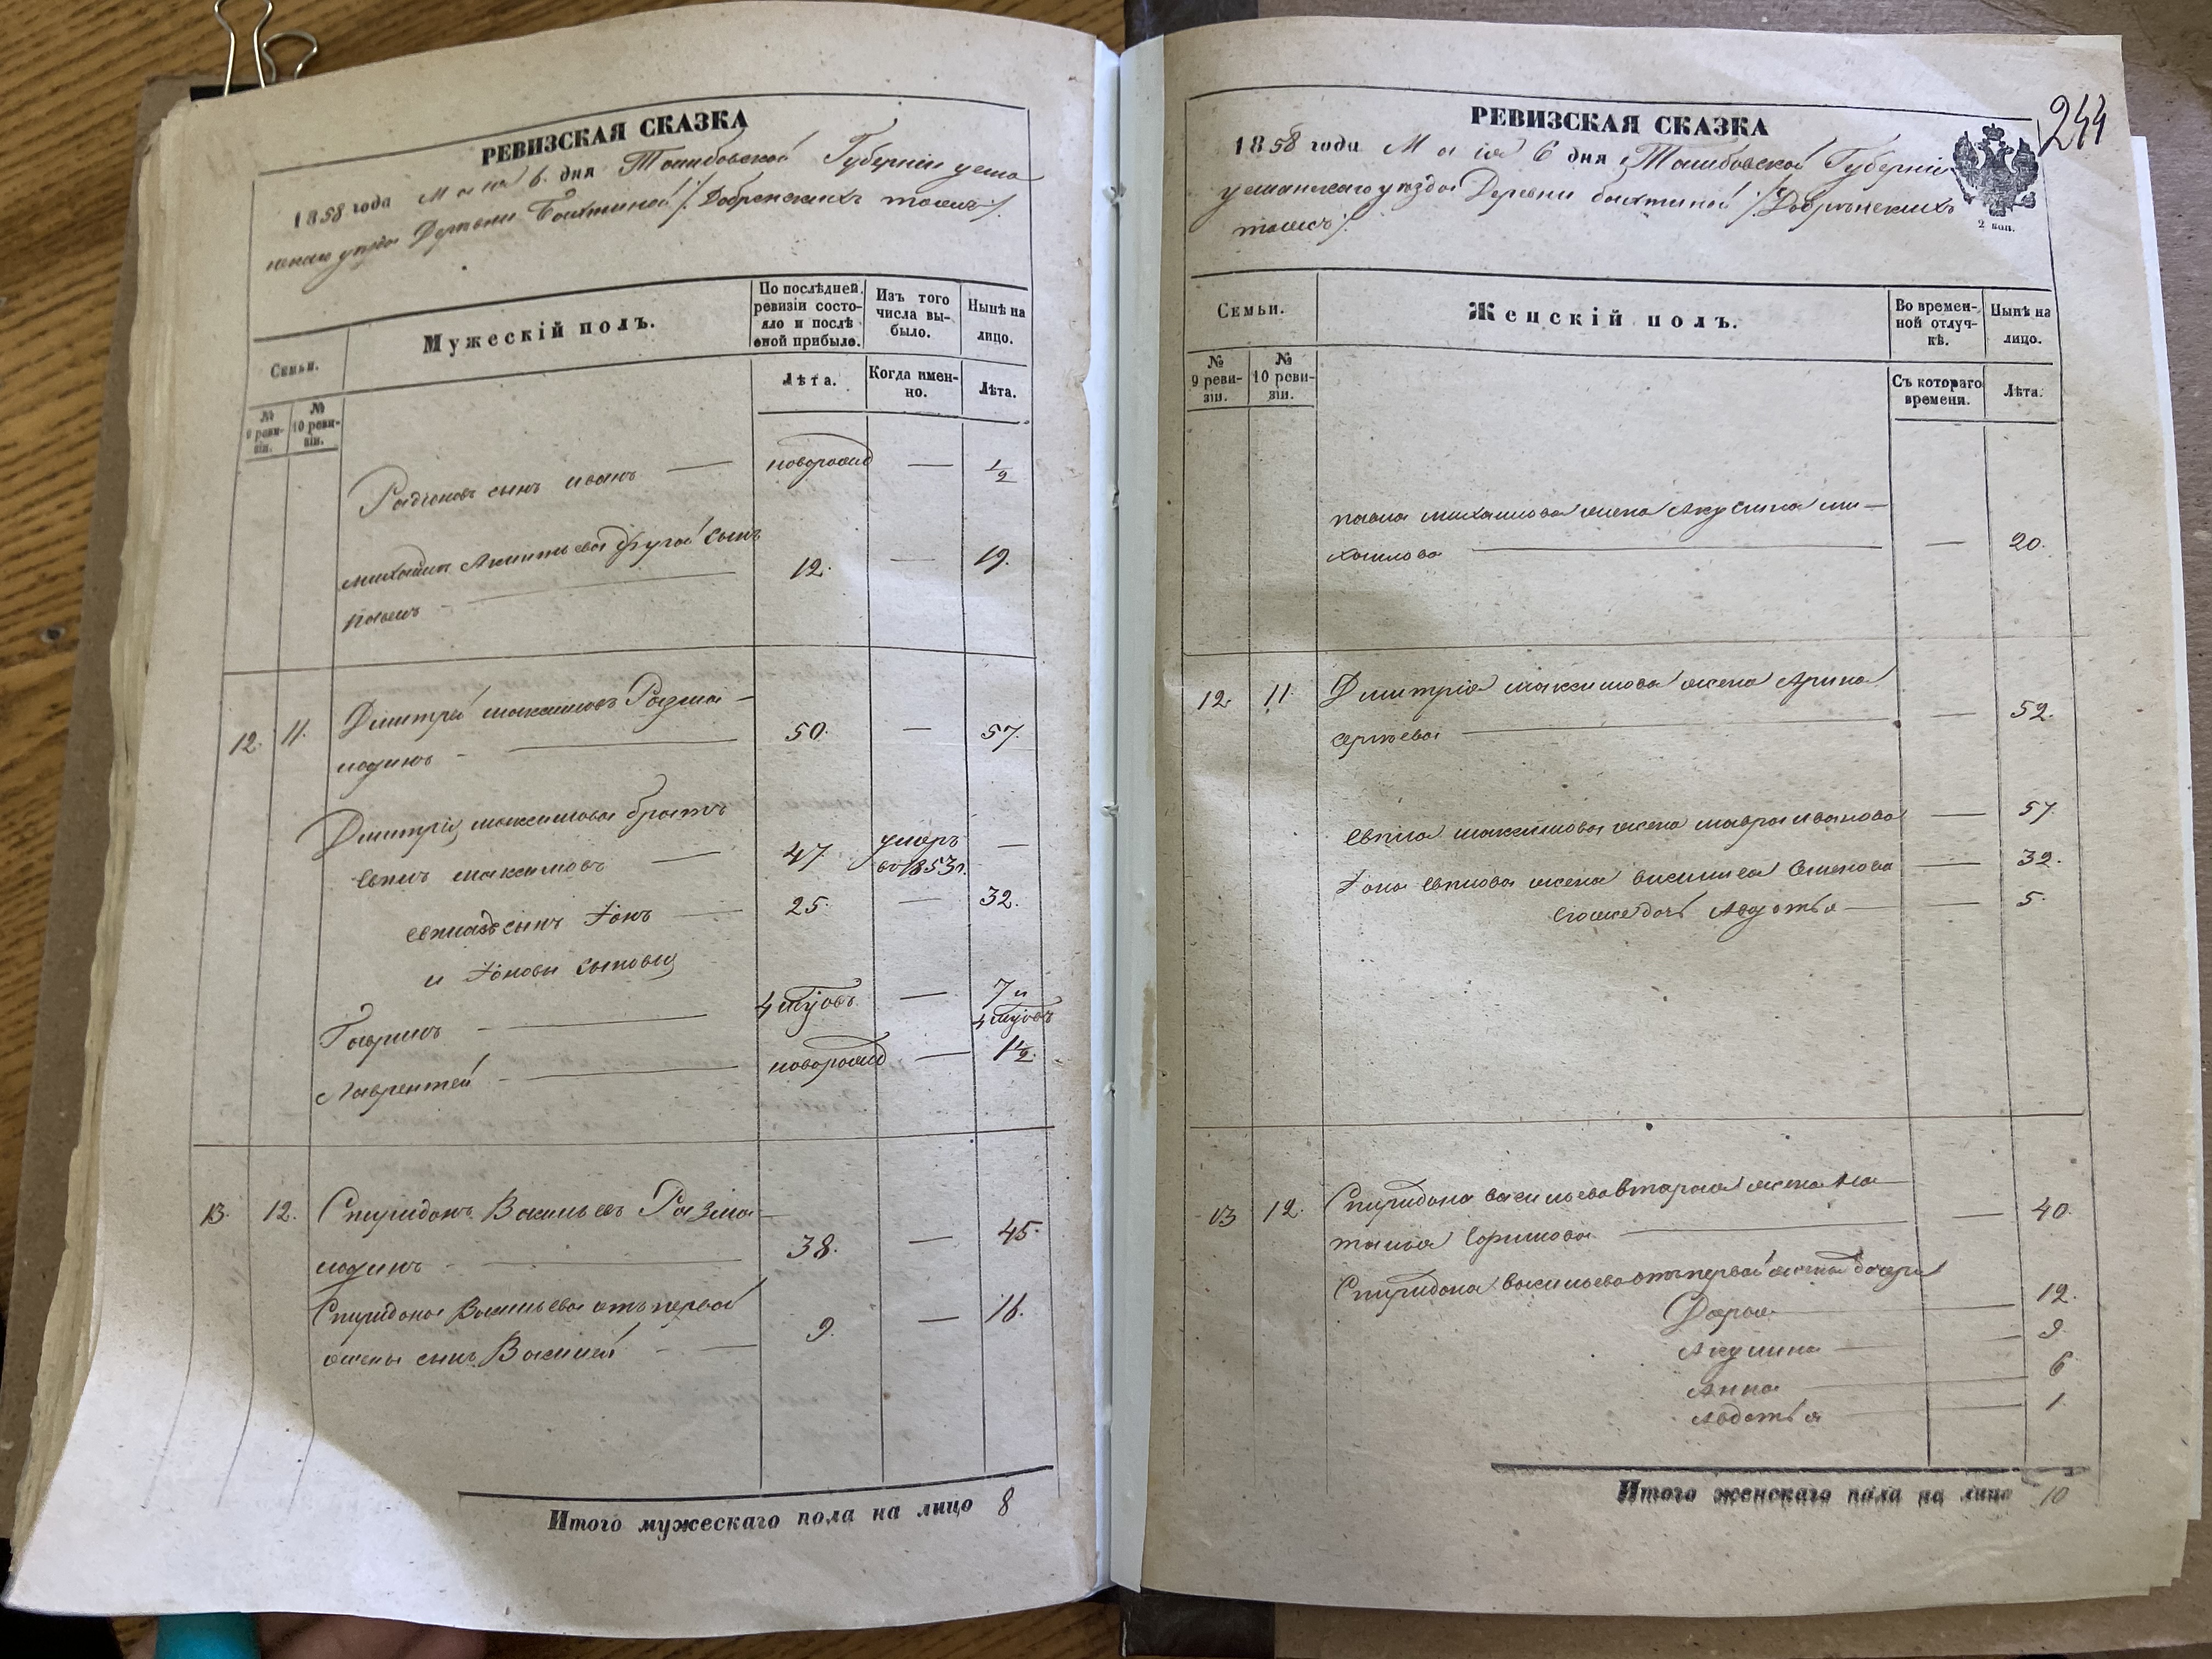 РЕВИЗСКАЯ СКАЗКА
1858 года Маія 6 дня Тамбовской Губерніи усма
нскаго уѣзда Деревни Бахтиной /: Добренскихъ тожъ:/
Семьи.
Мужескій полъ.
По послѣдней ревизіи состояло и послѣ оной прибыло.
Изъ того числа выбыло.
Нынѣ на лицо.
№ 9 ревизіи.
№ 10 ревизіи.
Лѣта.
Когда именно.
Лѣта.
Радіоновъ сынъ иванъ — новорожд — 1/2
михайла Акинтьева другой сынъ
павелъ — 12. — 19.
12. 11. Дмитрей максимовъ Разма-
нодинъ — 50. — 57.
Дмитрія максимова братъ
Евтихъ максимовъ — 47 умеръ въ 1853 г. —
сынъ Іонъ — 25. — 32.
и Іоновы сыновья
Гаврилъ — 4 — 7 и 4
Лаврентей — новорожд — 1 1/2.
13. 12. Спиридонъ Васильевъ Разма-
38. — 45.
Спиридона Васильева отъ первой
жены сынъ Василей — 9. — 16.
Итого мужескаго пола на лицо 8
РЕВИЗСКАЯ СКАЗКА
244
1858 года Маія 6 дня Тамбовской Губерніи
усманскаго уѣзда Деревни бахтиной /: Добренскихъ
тожъ:/
2 коп.
Семьи.
Женскій полъ.
Во временной отлучкѣ.
Нынѣ на лицо.
№ 9 ревизіи.
№ 10 ревизіи.
Съ котораго времени.
Лѣта.
павла михайлова жена Акулина ми-
хайлова — — 20.
12. 11. Дмитрія максимова жена Арина
сергѣева — — 52.
максимова жена мавра иванова — 57.
Іона жена василиса Семенова — 32.
Егоже дочь Авдотья — — 5.
13 12. Спиридона васильева вторая жена На-
талья Ефимова — — 40.
Спиридона васильева отъ первой жены дочери
Дарья — — 12.
Акулина — — 9.
Анна — — 6
Авдотья — — 1.
Итого женскаго пола на лицо 10